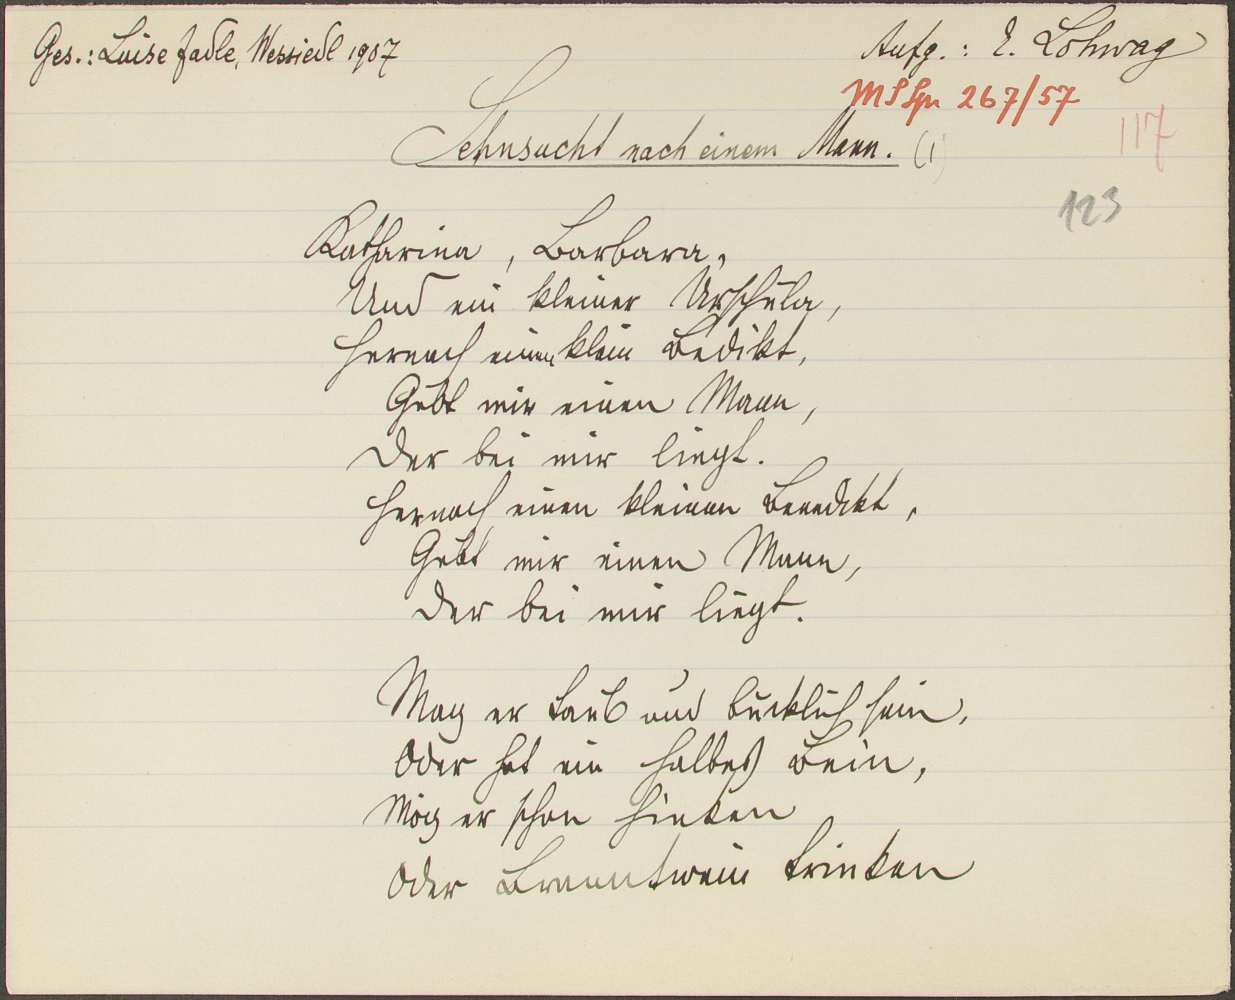 Ges.: Luise Fadle, Wessiedl 1907
Aufg.: E. Lohwag
MS Spr 267/57
117
Sehnsucht nach einem Mann. (1)
123
Katharina, Barbara,
Und ein kleiner Urschula,
Hernach einen klein Bedikt,
Gebt mir einen Mann,
Der bei mir liegt.
Hernach einen kleinen Benedikt,
Gebt mir einen Mann,
Der bei mir liegt.
Mag er taub und bucklich sein,
Oder hat ein halbes Bein,
Mag er schon hinken
Oder Branntwein trinken